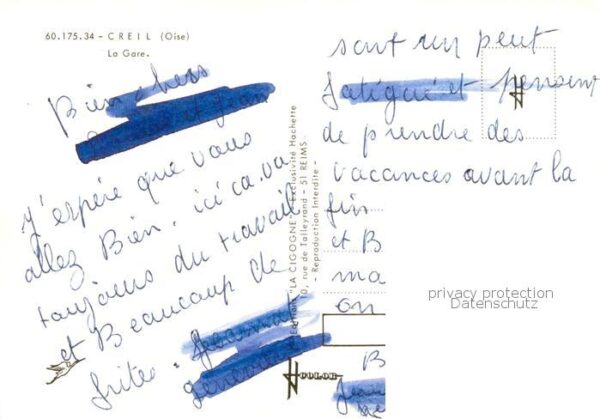 60.175.34 - CREIL (Oise)
La Gare.
Bien chers
et Jean
j'espére que vous
allez Bien. ici ca va
toujours du travail
et Beaucoup de
frites.
Edition "LA CIGOGNE" Exclusivité Hachette
10, rue de Talleyrand - 51 REIMS -
- Reproduction Interdite -
COLOR
sont un peut
fatigué et pensent
de prendre des
vacances avant la
fin
et B
ma
on
B
Jean
privacy protection
Datenschutz